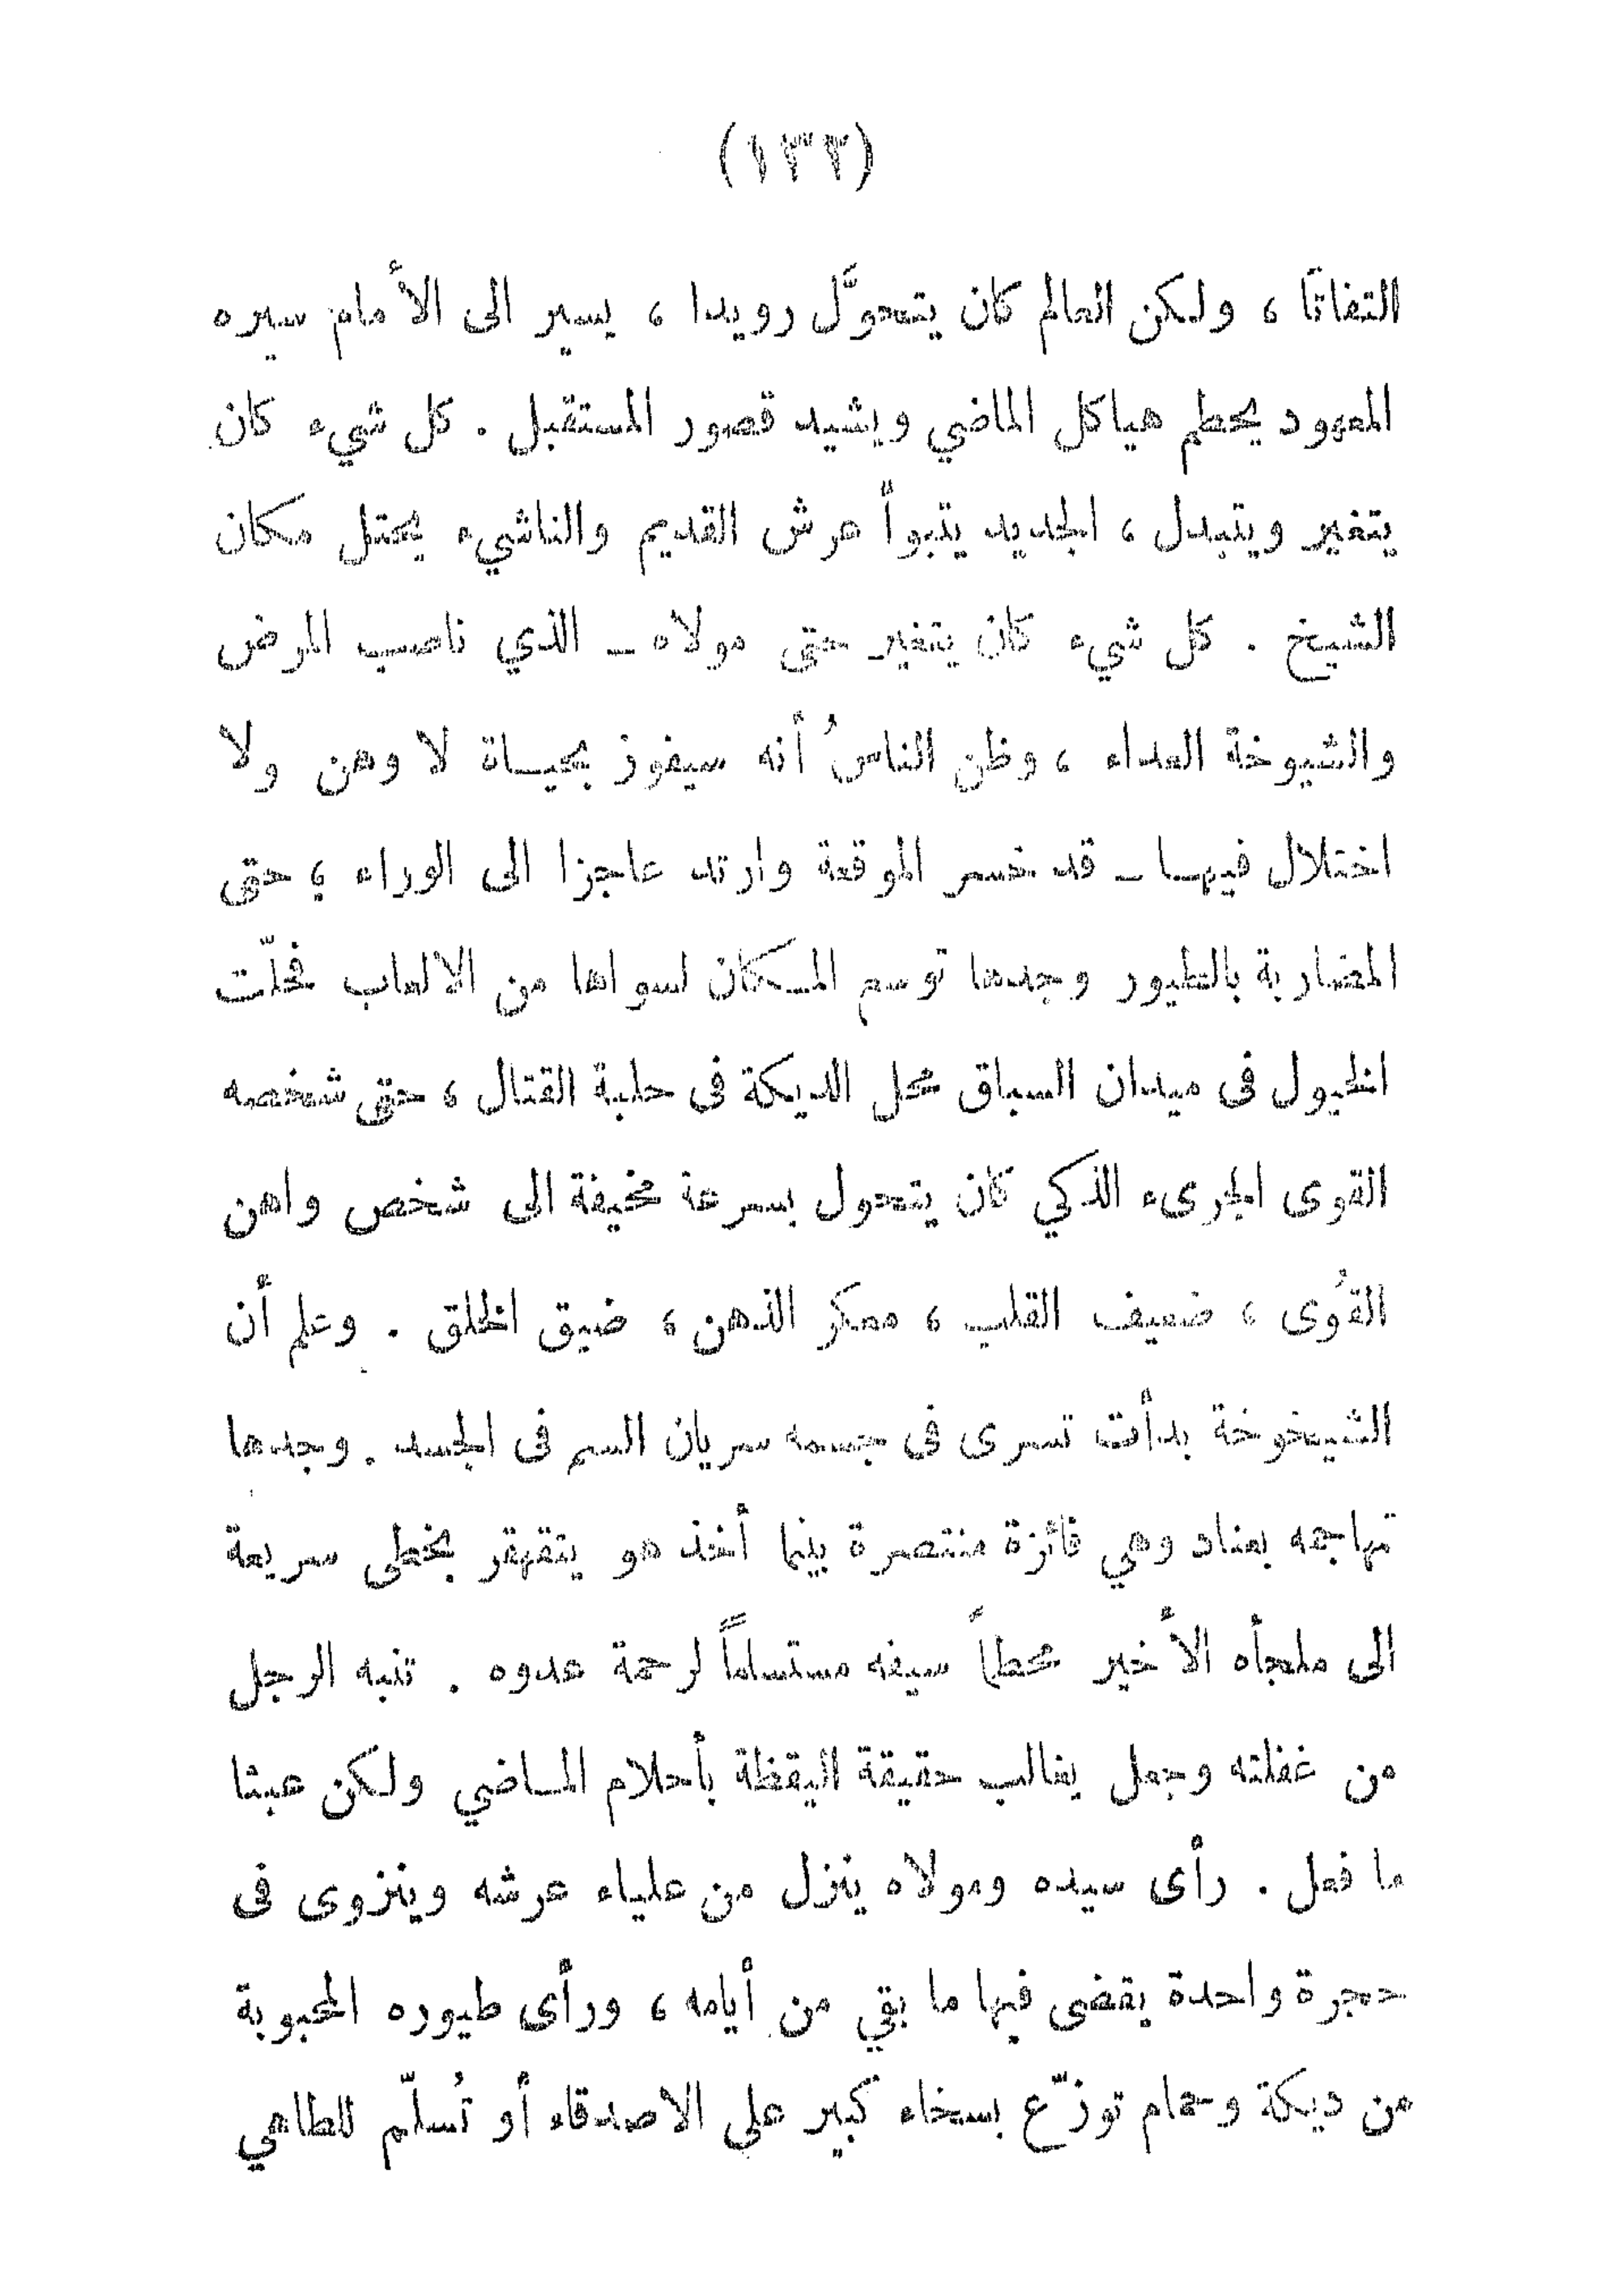 (١٣٢)
التفاتا ، ولكن العالم كان يتحوَّل رويدا ، يسير الى الأمام سيره
المعهود يحطم هياكل الماضي ويشيد قصور المستقبل . كل شيء كان
يتغير ويتبدل ، الجديد يتبوأ عرش القديم والناشيء يحتل مكان
الشيخ . كل شيء كان يتغير حتى مولاه ــ الذي ناصب المرض
والشيوخة العداء ، وظن الناسُ أنه سيفوز بحياة لا وهن ولا
اختلال فيها ــ قد خسر الموقعة وارتد عاجزا الى الوراء ؛ حتى
المضاربة بالطيور وجدها توسع المكان لسواها من الالعاب فحلّت
الخيول فى ميدان السباق محل الديكة فى حلبة القتال ، حتى شخصه
القوى الجرىء الذكي كان يتحول بسرعة مخيفة الى شخص واهن
القُوى ، ضعيف القلب ، معكر الذهن ، ضيق الخلق . وعلم أن
الشيخوخة بدأت تسرى فى جسمه سريان السم فى الجسد . وجدها
تهاجمه بعناد وهي فائزة منتصرة بينما أخذ هو يتقهقر بخطى سريعة
الى ملجأه الأخير محطماً سيفه مستسلماً لرحمة عدوه . تنبه الرجل
من غفلته وجعل يغالب حقيقة اليقظة بأحلام الماضي ولكن عبثا
ما فعل . رأى سيده ومولاه ينزل من علياء عرشه وينزوى فى
حجرة واحدة يقضى فيها ما بقي من أيامه ، ورأى طيوره المحبوبة
من ديكة وحمام توزّع بسخاء كبير على الاصدقاء أو تُسلّم للطاهي